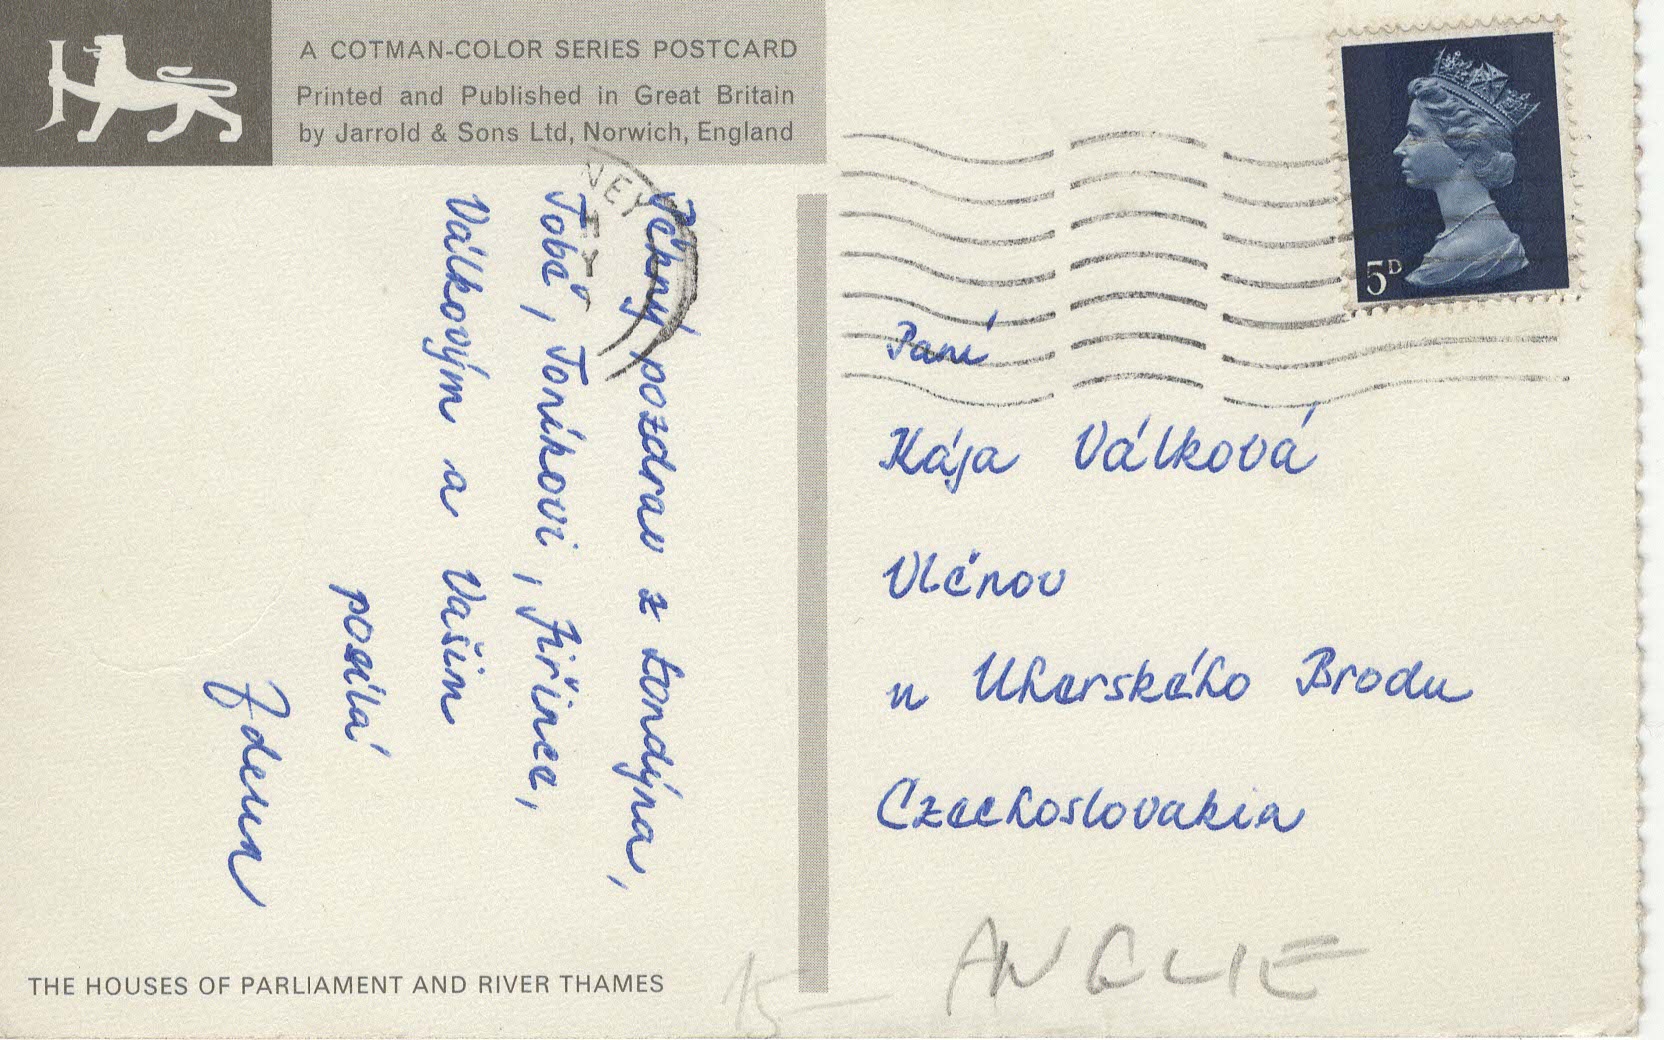 A COTMAN-COLOR SERIES POSTCARD
Printed and Published in Great Britain
by Jarrold & Sons Ltd, Norwich, England
NEY
5D
Pěkný pozdrav z Londýna,
Tobě, Toníkovi, Jiřince,
Válkovým a Vašim
posílá
Zdena
Paní
Kája Válková
Vlčnov
u Uherského Brodu
Czechoslovakia
THE HOUSES OF PARLIAMENT AND RIVER THAMES
15-
ANGLIE